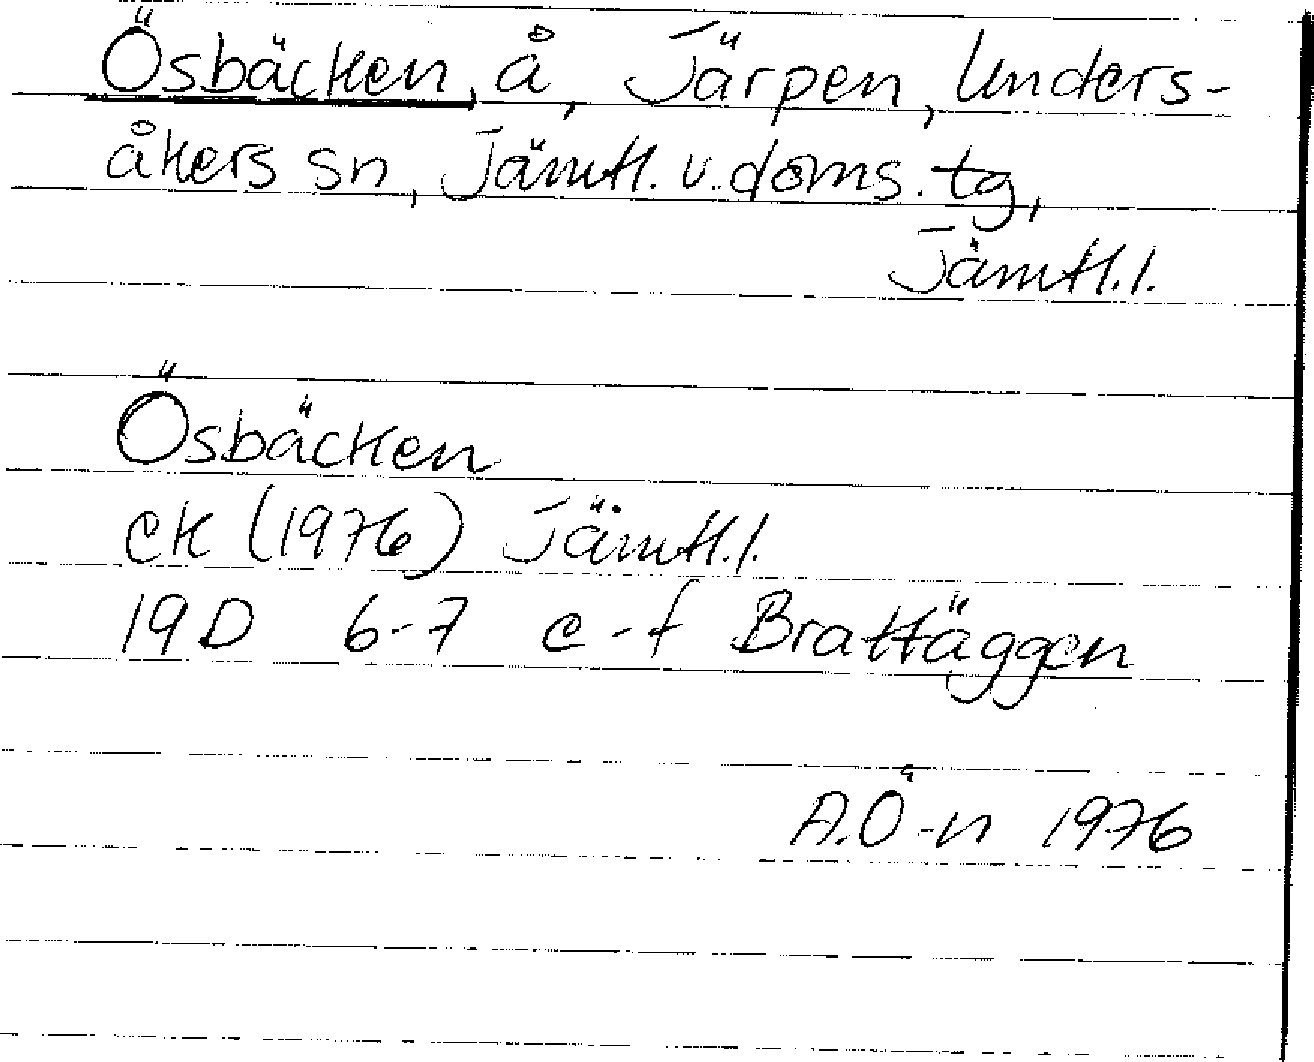 Ösbäcken, å, Järpen, Unders-
åkers sn, Jämtl. v. doms. tg,
Jämtl.l.
Ösbäcken
ek (1976) Jämtl.l.
19D 6-7 c-f Brattäggen
A.Ö-n 1976